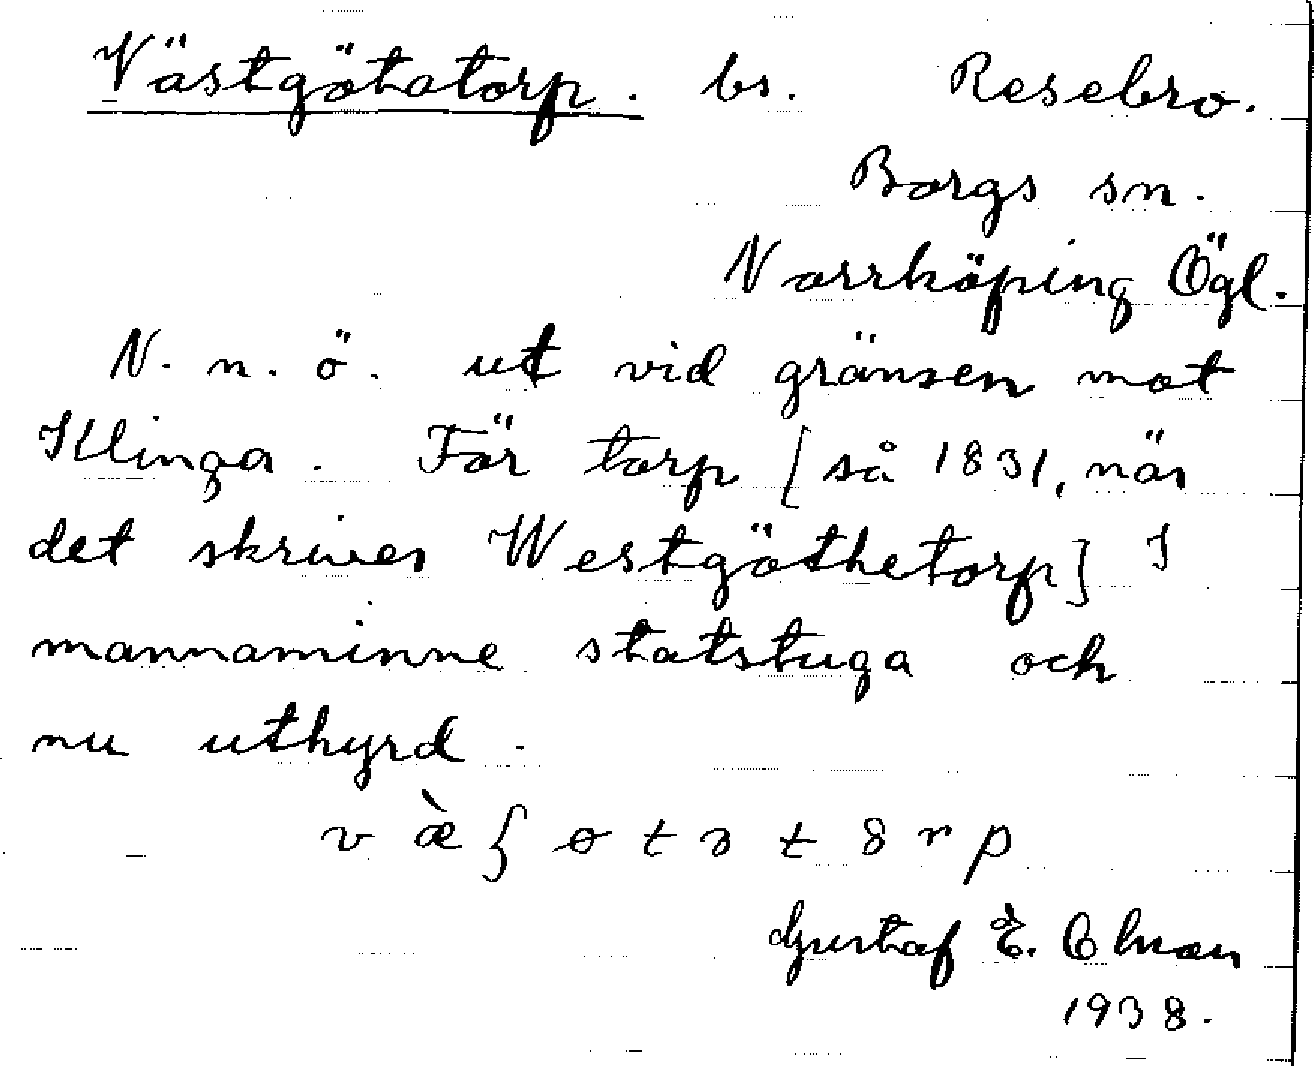 Västgötatorp. bs. Resebro.
Borgs sn.
Norrköping Ögl.
N. n. ö. ut vid gränsen mot
Klinga. För torp [så 1831, när
det skrives Westgöthetorp] I
mannaminne statstuga och
nu uthyrd.
Gustaf E.
1938.